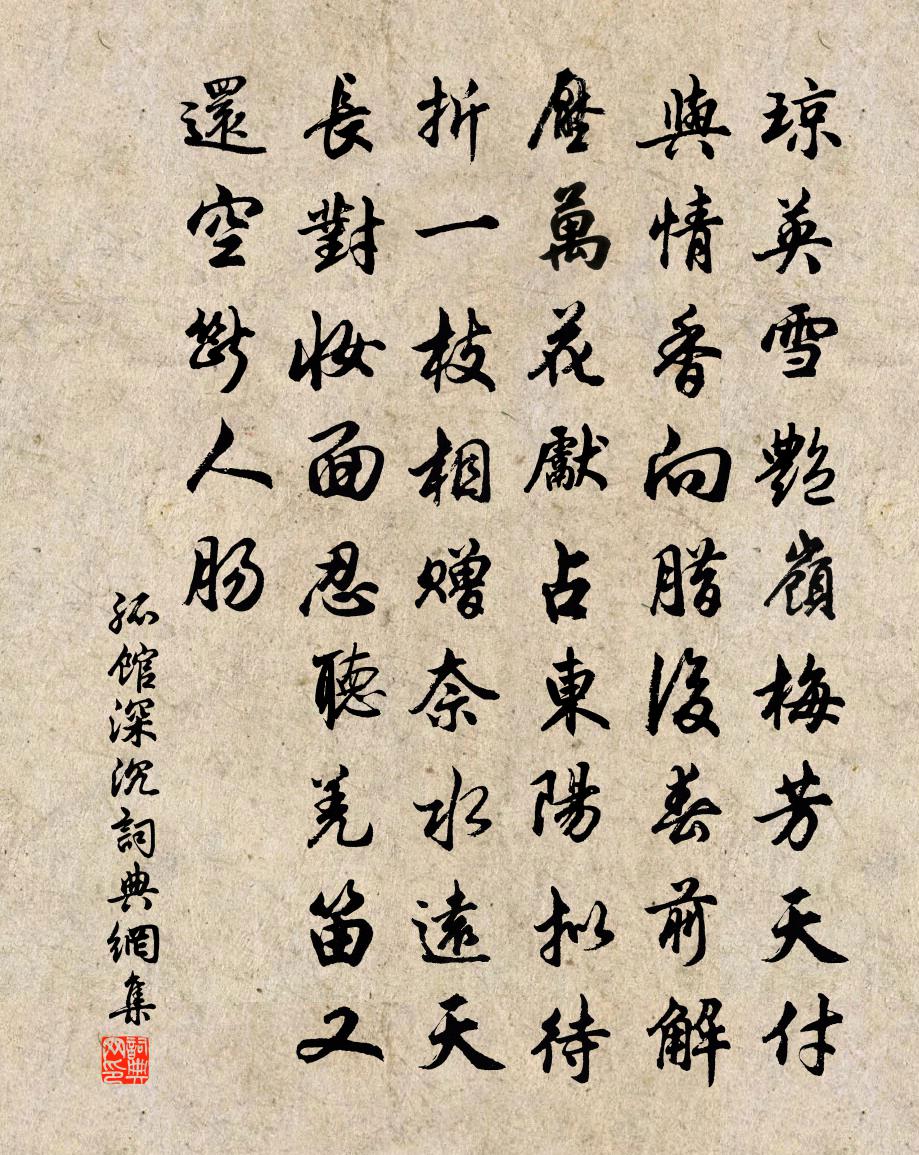 琼英雪艷嶺梅芳天付
與情香向腊後春前解
壓萬花獻占東陽拟待
折一枝相贈奈水遠天
長對妝面忍聽羌笛又
還空斷人肠
孤館深沉詞典網集
詞典网印